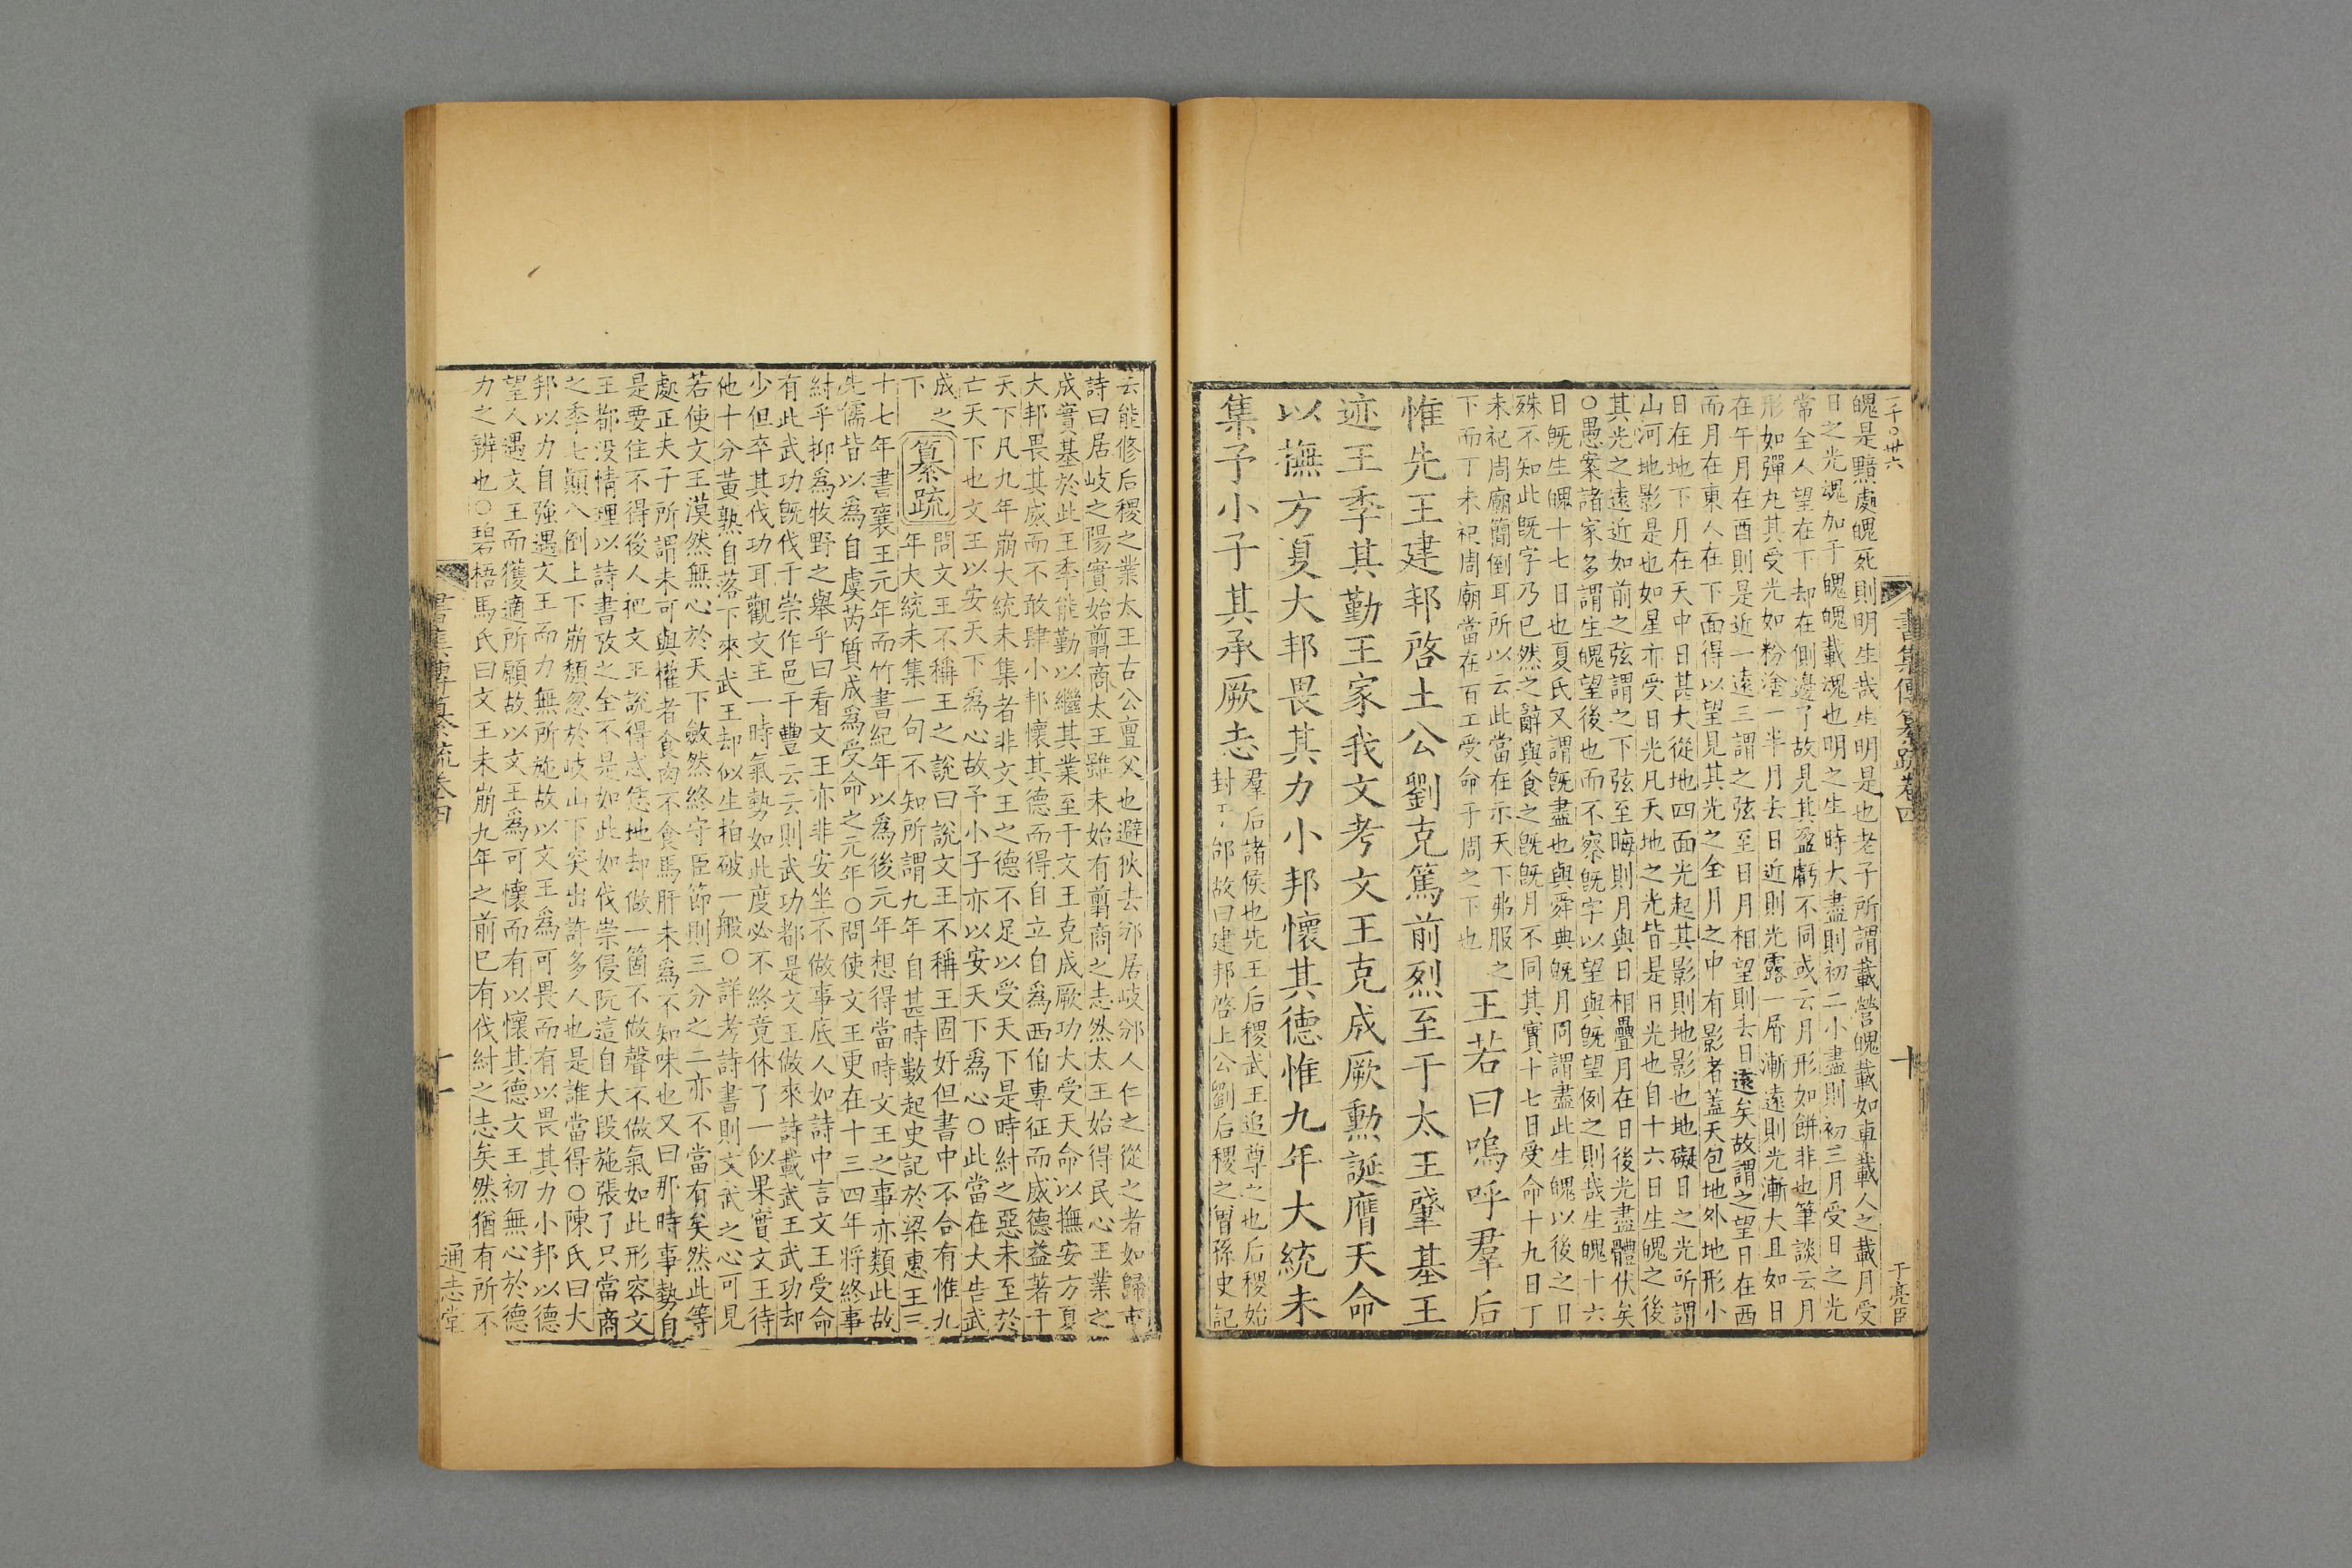 二千〇卅六
書集傳纂疏卷四
十
于亮臣
魄是黯處魄死則明生哉生明是也老子所謂載營魄載如車載人之載月受
日之光魂加于魄魄載魂也明之生時大盡則初二小盡則初三月受日之光
常全人望在下却在側邊了故見其盈虧不同或云月形如餅非也筆談云月
形如彈丸其受光如粉塗一半月去日近則光露一眉漸遠則光漸大且如日
在午月在酉則是近一遠三謂之弦至日月相望則去日遠矣故謂之望日在西
而月在東人在下面得以望見其光之全月之中有影者蓋天包地外地形小
日在地下月在天中日甚大從地四面光起其影則地影也地礙日之光所謂
山河地影是也如星亦受日光凡天地之光皆是日光也自十六日生魄之後
其光之遠近如前之弦謂之下弦至晦則月與日相疊月在日後光盡體伏矣
〇愚案諸家多謂生魄望後也而不察旣字以望與旣望例之則哉生魄十六
日旣生魄十七日也夏氏又謂旣盡也與舜典旣月同謂盡此生魄以後之日
殊不知此旣字乃已然之辭與食之旣旣月不同其實十七日受命十九日丁
未祀周廟簡倒耳所以云此當在示天下弗服之
下而丁未祀周廟當在百工受命于周之下也
王若曰嗚呼羣后
惟先王建邦啓土公劉克篤前烈至于太王肇基王
迹王季其勤王家我文考文王克成厥勲誕膺天命
以撫方夏大邦畏其力小邦懷其德惟九年大統未
集予小子其承厥志
羣后諸侯也先王后稷武王追尊之也后稷始
封于邰故曰建邦啓土公劉后稷之曾孫史記
云能修后稷之業太王古公亶父也避狄去邠居岐邠人仁之從之者如歸市
詩曰居岐之陽實始翦商太王雖未始有翦商之志然太王始得民心王業之
成實基於此王季能勤以繼其業至于文王克成厥功大受天命以撫安方夏
大邦畏其威而不敢肆小邦懷其德而得自立自爲西伯專征而威德益著于
天下凡九年崩大統未集者非文王之德不足以受天下是時紂之惡未至於
亡天下也文王以安天下爲心故予小子亦以安天下爲心〇此當在大告武
成之
下
纂疏
問文王不稱王之說曰說文王不稱王固好但書中不合有惟九
年大統未集一句不知所謂九年自甚時數起史記於梁惠王三
十七年書襄王元年而竹書紀年以爲後元年想得當時文王之事亦類此故
先儒皆以爲自虞芮質成爲受命之元年〇問使文王更在十三四年將終事
紂乎抑爲牧野之舉乎曰看文王亦非安坐不做事底人如詩中言文王受命
有此武功旣伐于崇作邑于豐云云則武功都是文王做來詩載武王武功却
少但卒其伐功耳觀文王一時氣勢如此度必不終竟休了一似果實文王待
他十分黃熟自落下來武王却似生拍破一般〇詳考詩書則文武之心可見
若使文王漠然無心於天下斂然終守臣節則三分之二亦不當有矣然此等
處正夫子所謂未可與權者食肉不食馬肝未爲不知味也又曰那時事勢自
是要住不得後人把文王說得恁地却做一箇不做聲不做氣如此形容文
王都没情理以詩書攷之全不是如此如伐崇侵阮這自大段施張了只當商
之季七顚八倒上下崩頹忽於岐山下突出許多人也是誰當得〇陳氏曰大
邦以力自強遇文王而力無所施故以文王爲可畏而有以畏其力小邦以德
望人遇文王而獲適所願故以文王爲可懷而有以懷其德文王初無心於德
力之辨也〇碧梧馬氏曰文王未崩九年之前已有伐紂之志矣然猶有所不
書集傳纂疏卷四
十一
通志堂